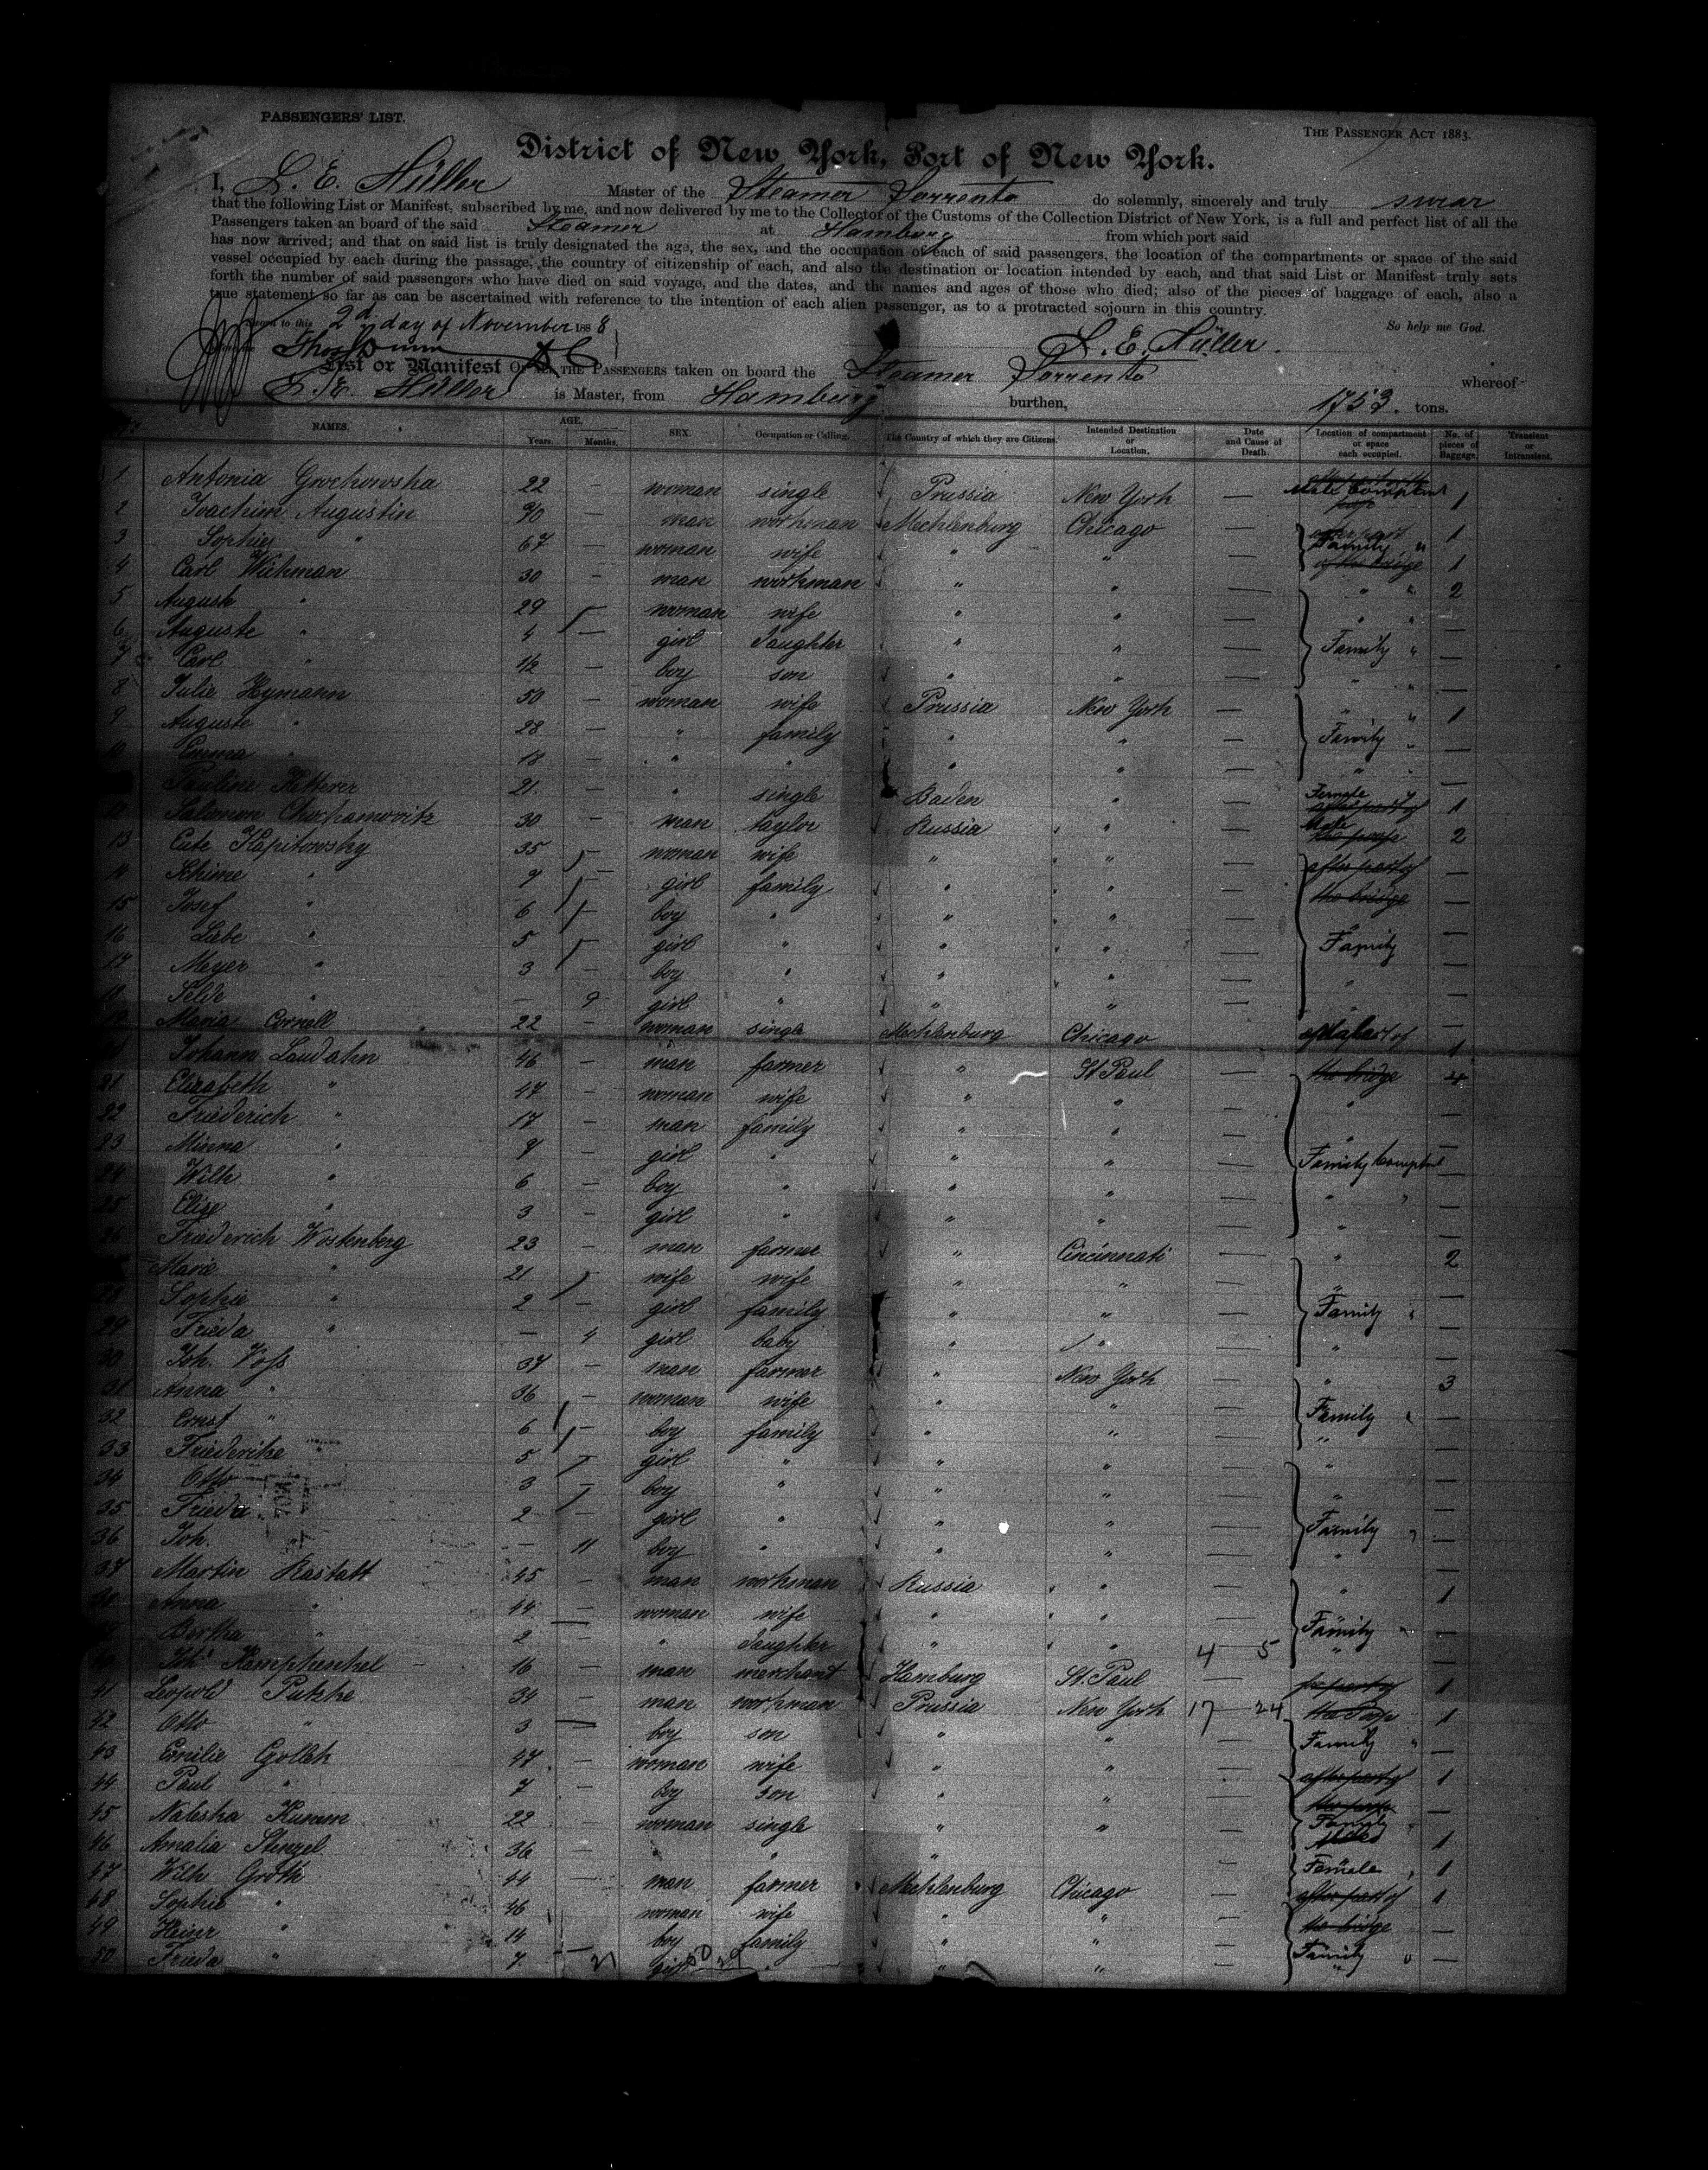 PASSENGERS' LIST.
THE PASSENGER ACT 1883.
District of New York, Port of New York.
I, L. E. Müller Master of the Steamer Sorrento do solemnly, sincerely and truly swear
that the following List or Manifest, subscribed by me, and now delivered by me to the Collector of the Customs of the Collection District of New York, is a full and perfect list of all the
Passengers taken an board of the said Steamer at Hamburg from which port said
has now arrived; and that on said list is truly designated the age, the sex, and the occupation of each of said passengers, the location of the compartments or space of the said
vessel occupied by each during the passage, the country of citizenship of each, and also the destination or location intended by each, and that said List or Manifest truly sets
forth the number of said passengers who have died on said voyage, and the dates, and the names and ages of those who died; also of the pieces of baggage of each, also a
true statement so far as can be ascertained with reference to the intention of each alien passenger, as to a protracted sojourn in this country.
So help me God.
to this 2d day of November 1888
L. E. Müller.
List or Manifest OF ALL THE PASSENGERS taken on board the Steamer Sorrento whereof
L. E. Müller is Master, from Hamburg burthen, 1753. tons.
NAMES. AGE. Years. Months. SEX. Occupation or Calling. The Country of which they are Citizens. Intended Destination or Location. Date and Cause of Death. Location of compartment or space each occupied. No. of pieces of Baggage. Transient or Intransient.
1 Antonia Grochowska 22 — woman single Prussia New York — 1
2 Joachim Augustin — man workman Mecklenburg Chicago — 1
3 Sophie " 67 — woman wife " " — Family " 1
4 Carl Wichman 30 — man workman " " — " " 2
5 August " 29 — woman wife " " — " " —
6 Auguste " 4 — girl daughter " " — Family " —
7 Carl " — boy son " " — " " —
8 Julie Heymann 50 — woman wife Prussia New York — " " 1
9 Auguste " 28 — " family " " — Family " —
10 Emma " 18 — " " " " — " —
Pauline Ketterer 21 — " single Baden " — Female 1
Salomon 30 — man taylor Russia " — 2
13 Cate Kapitowsky 35 — woman wife " " — after part of —
14 Schime " 9 — girl family " " — the bridge —
15 Josef " 6 — boy " " " — —
16 Liebe " 5 — girl " " " — Family —
17 Meyer " 3 — boy " " " — " —
18 Selde " — 9 girl " " " — " —
19 Maria Cornell 22 — woman single Mecklenburg Chicago — 1
Johann Laudahn 46 — man farmer " St Paul — the bridge 4
21 Elizabeth " 47 — woman wife " " — " —
22 Friederich " 17 — man family " " — " —
23 Minna " 9 — girl " " " — Family —
24 Wilh " 6 — boy " " " — " " —
25 Elise " 3 — girl " " " — " —
26 Friederich Wostenberg 23 — man farmer " Cincinnati — " 2
Marie " 21 — wife wife " " — " —
28 Sophie " 2 — girl family " " — Family " —
29 Frieda " — 4 girl baby " " — " —
30 Joh. Voss 37 — man farmer " New York — " 3
31 Anna " 36 — woman wife " " — Family " —
32 Ernst " 6 — boy family " " — " —
33 Friederike " 5 — girl " " " — " —
34 Otto 3 — boy " " " — " —
35 Frieda 2 — girl " " " — Family " —
36 Joh. — 11 boy " " " — " —
37 Martin Rastatt 45 — man workman Russia " — " 1
Anna " 44 — woman wife " " — Family " —
Bertha " 2 — " daughter " " 4 5 " —
Joh. Kamphenkel 16 — man merchant Hamburg St. Paul — 1
41 Leopold Putzke 34 — man workman Prussia New York 17 24 1
42 Otto " 3 — boy son " " — Family " —
43 Emilie 47 — woman wife " " — after part of 1
44 Paul " 7 — boy son " " — —
45 Natesha Kumm 22 — woman single " " — Family 1
46 Amalia Stenzel 36 — " " " — Female 1
47 Wilh Groth 44 — man farmer Mecklenburg Chicago — after part of 1
48 Sophie " 46 — woman wife " " — the bridge —
49 Heinr " 14 — boy family " " — Family " —
50 Frieda " 7 — 21 girl 29 " " " — " —